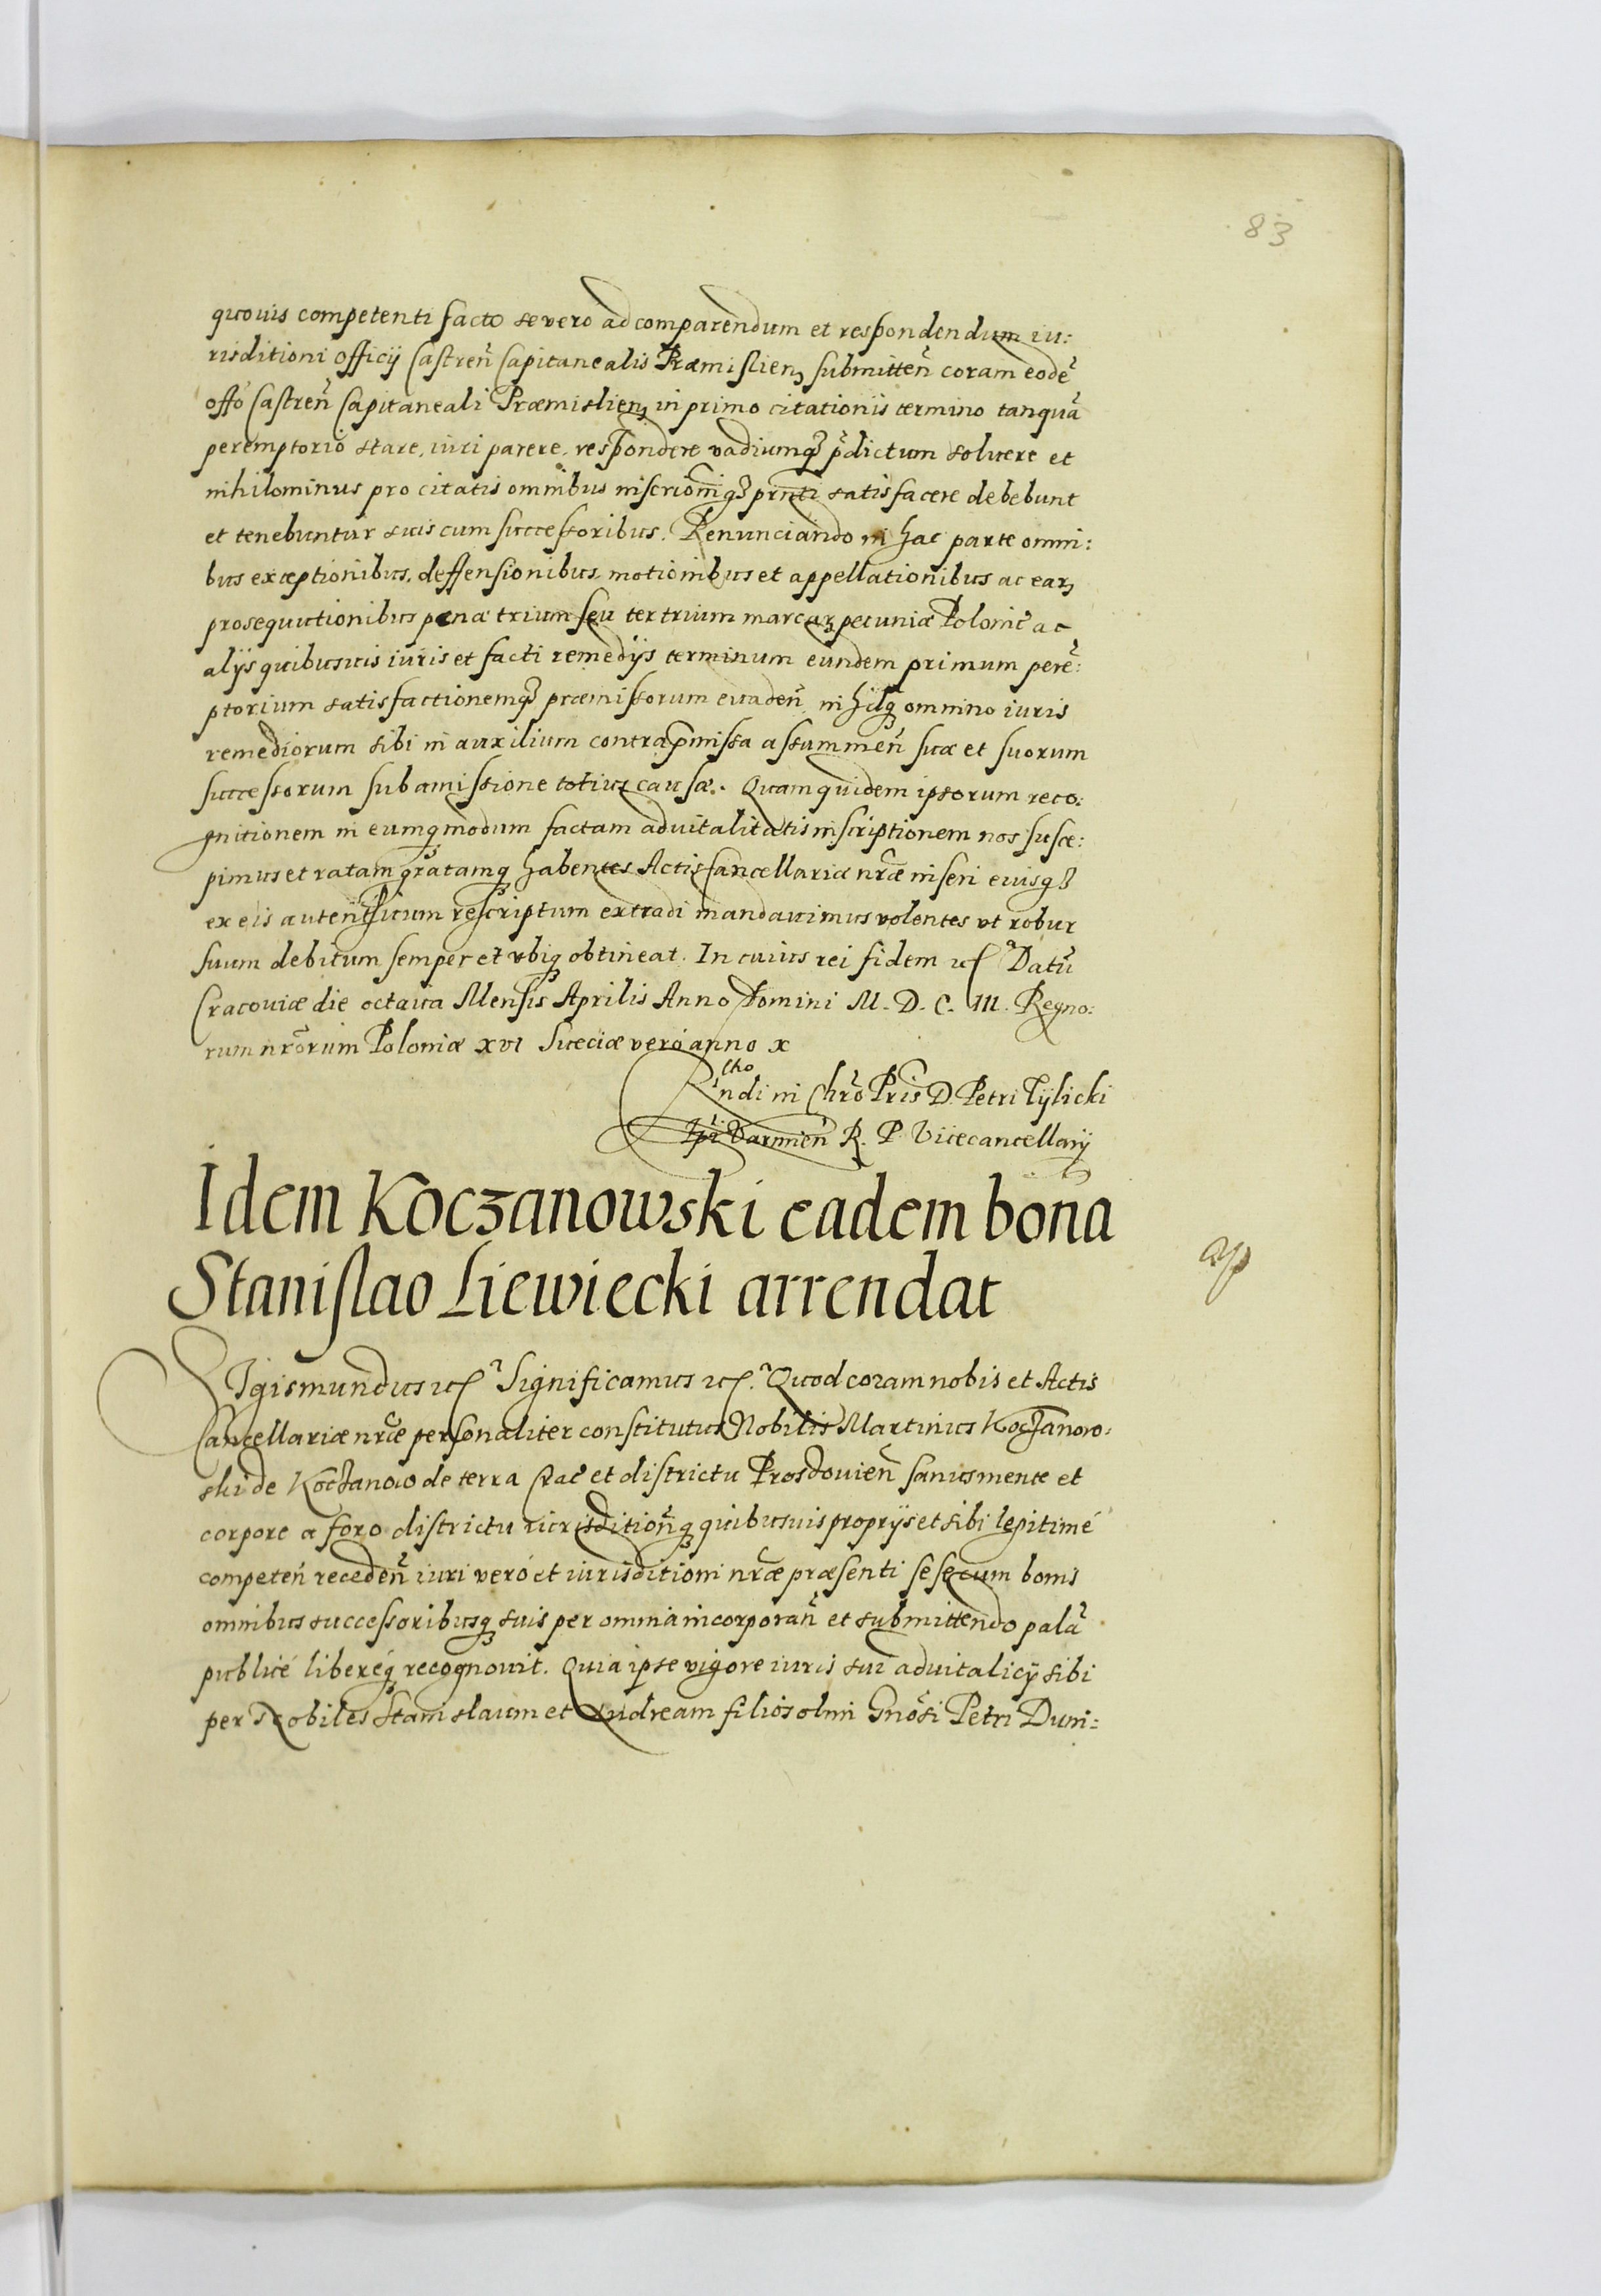 83
quouis competenti facto se vero ad comparendum et respondendum iu:
risditioni officij Castreñ Capitanealis Præmislienꝫ submitteñ coram eodẽ
offo Castreñ Capitaneali Præmislienꝫ in primo citationis termino tanquã
peremptorio stare, iuri parere, respondere vadiumqꝫ p̃dictum soluere et
nihilominus pro citatis omnibus inscrionĩqꝫ prñti satisfacere debebunt
et tenebuntur suis cum successoribus. Renunciando in hac parte omni:
bus exceptionibus, deffensionibus, motionibus et appellationibus ac earꝫ
prosequutionibus pœnæ trium seu ter trium marcarꝫ pecuniæ Polonic̃ ac
alijs quibusuis iuris et facti remedijs terminum eundem primum perẽ:
ptorium satisfactionemqꝫ præmissorum euadeñ nihilqꝫ omnino iuris
remediorum sibi in auxilium contra p̃missa assummeñ suæ et suorum
successorum sub amissione totius causæ. Quamquidem ipsorum reco:
gnitionem in eumqꝫ modum factam aduitalitatis inscriptionem nos susce:
pimus et ratam gratamqꝫ habentes Actis Cancellariæ nr̃æ inseri eiusqꝫ
ex eis autenthicum rescriptum extradi mandauimus volentes vt robur
suum debitum semper et vbiqꝫ obtineat. In cuius rei fidem etc̃ Datũ
Cracouiæ die octaua Mensis Aprilis Anno Domini M. D. C. III. Regno:
rum nr̃orum Poloniæ XVI Sueciæ vero anno X
Rndi in Chrõ Pris D. Petri Tÿlicki
Epi Varmieñ R. P. Vicecancellarij
Idem Koczanowski eadem bona
Stanislao Liewiecki arrendat
Sigismundus etc̃ Significamus etc̃. Quod coram nobis et Actis
Cancellariæ nr̃æ personaliter constitutus Nobilis Martinus Koczanow:
ski de Koczanow de terra Crac̃ et districtu Prosdouieñ sanus mente et
corpore a foro districtu iurisditioñqꝫ quibusuis proprijs et sibi legitimé
competeñ recedeñ iuri veró et iurisditioni nr̃æ præsenti sese cum bonis
omnibus successoribusqꝫ suis per omnia incorporañ et submittendo palã
publicé liberéqꝫ recognouit. Quia ipse vigore iuris sui aduitalicij sibi
per Nobiles Stanislaum et Andream filios olim Gnõsi Petri Duni=